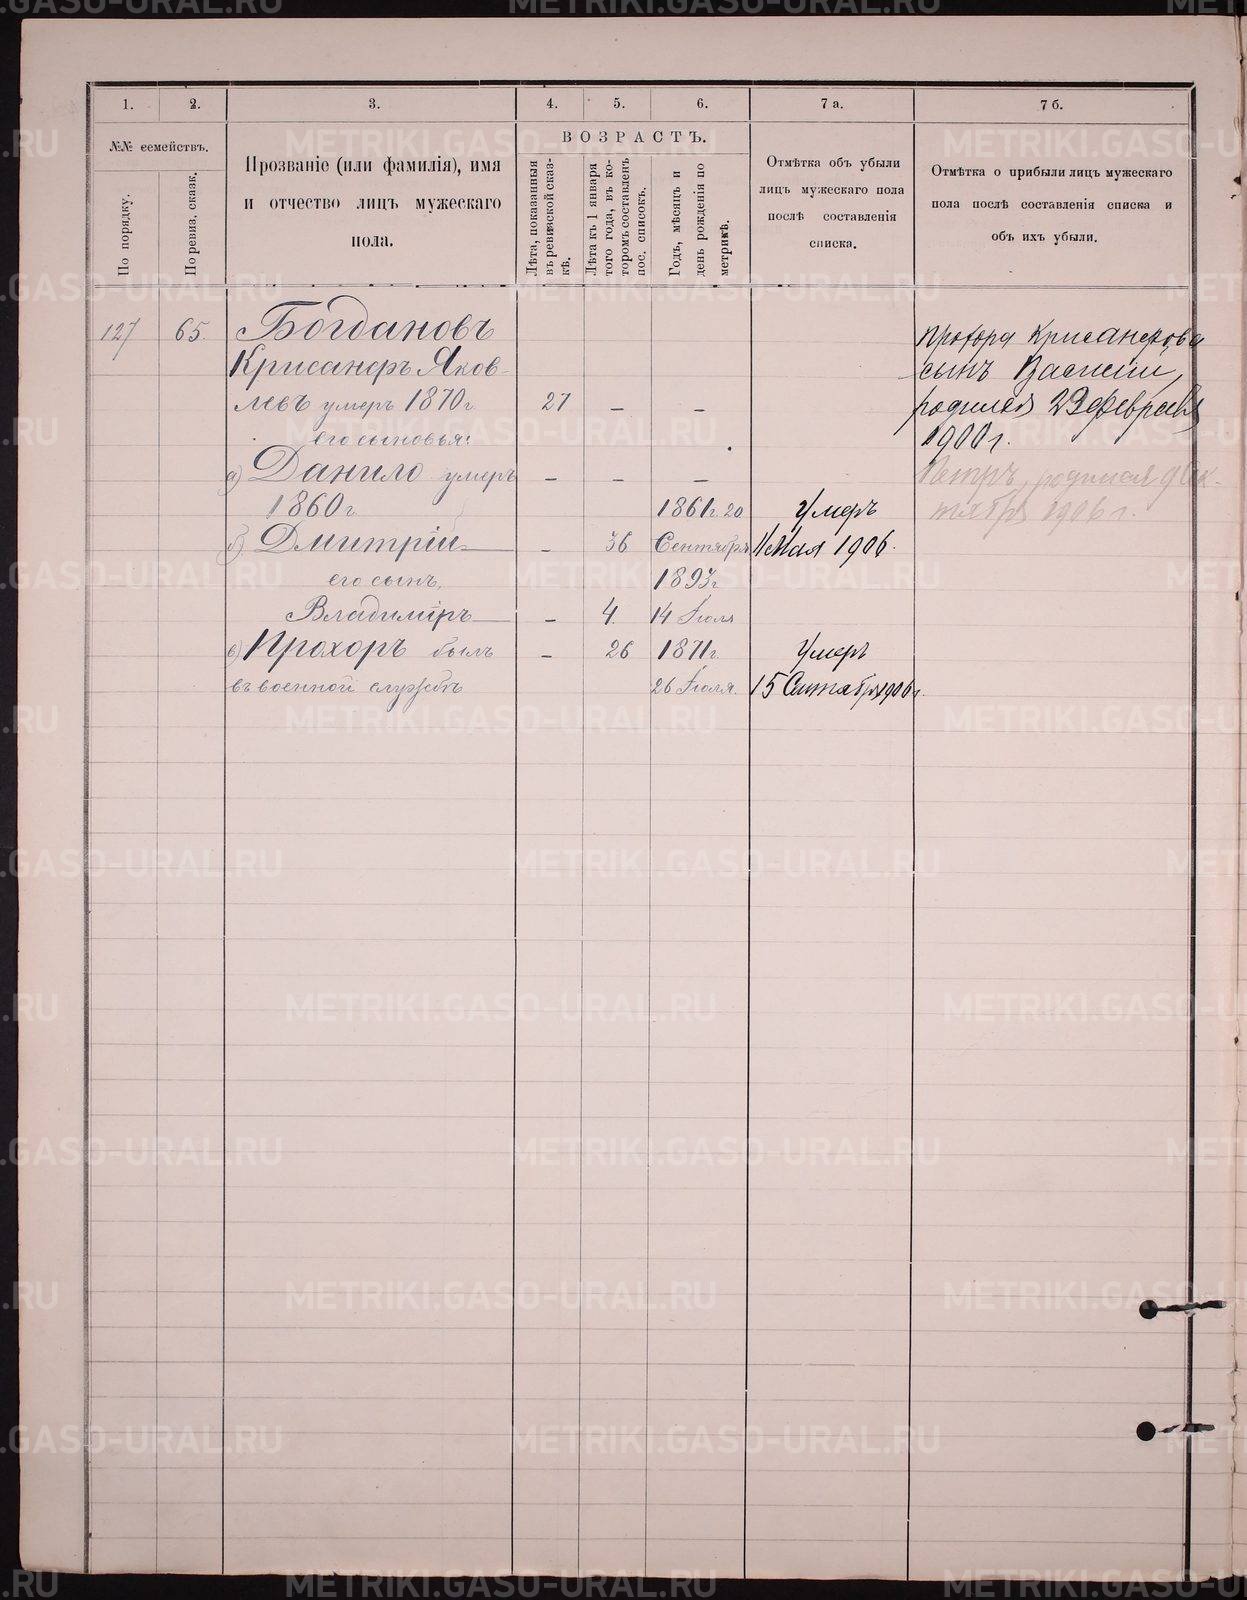 1.
2.
3.
4.
5.
6.
7 а.
7 б.
№№ семействъ.
По порядку.
По ревиз. сказк.
Прозваніе (или фамилія), имя
и отчество лицъ мужескаго
пола.
ВОЗРАСТЪ.
Лѣта, показанныя
въ ревизской сказ-
кѣ.
Лѣта къ 1 января
того года, въ ко-
торомъ составленъ
пос. списокъ.
Годъ, мѣсяцъ и
день рожденія по
метрикѣ.
Отмѣтка объ убыли
лицъ мужескаго пола
послѣ составленія
списка.
Отмѣтка о прибыли лицъ мужескаго
пола послѣ составленія списка и
объ ихъ убыли.
127 65. Богдановъ
Крисанфъ Яков-
левъ умеръ 1870 г. 27 — —
его сыновья:
а) Данило умеръ — — —
1860 г.
б) Дмитрій — — 36 1861 г. 20
Сентября
его сынъ, 1893 г.
Владиміръ — — 4. 14 Іюля
в) Прохоръ былъ — 26 1871 г.
въ военной службѣ 26 Іюля.
Умеръ
11 Мая 1906.
Умеръ
15 Сентября 1906 г.
Прохора Крисанфова
сынъ Василій,
родился 29 февраля
1900 г.
Петръ, родился 9 Ок-
тября 1906 г.
METRIKI.GASO-URAL.RU